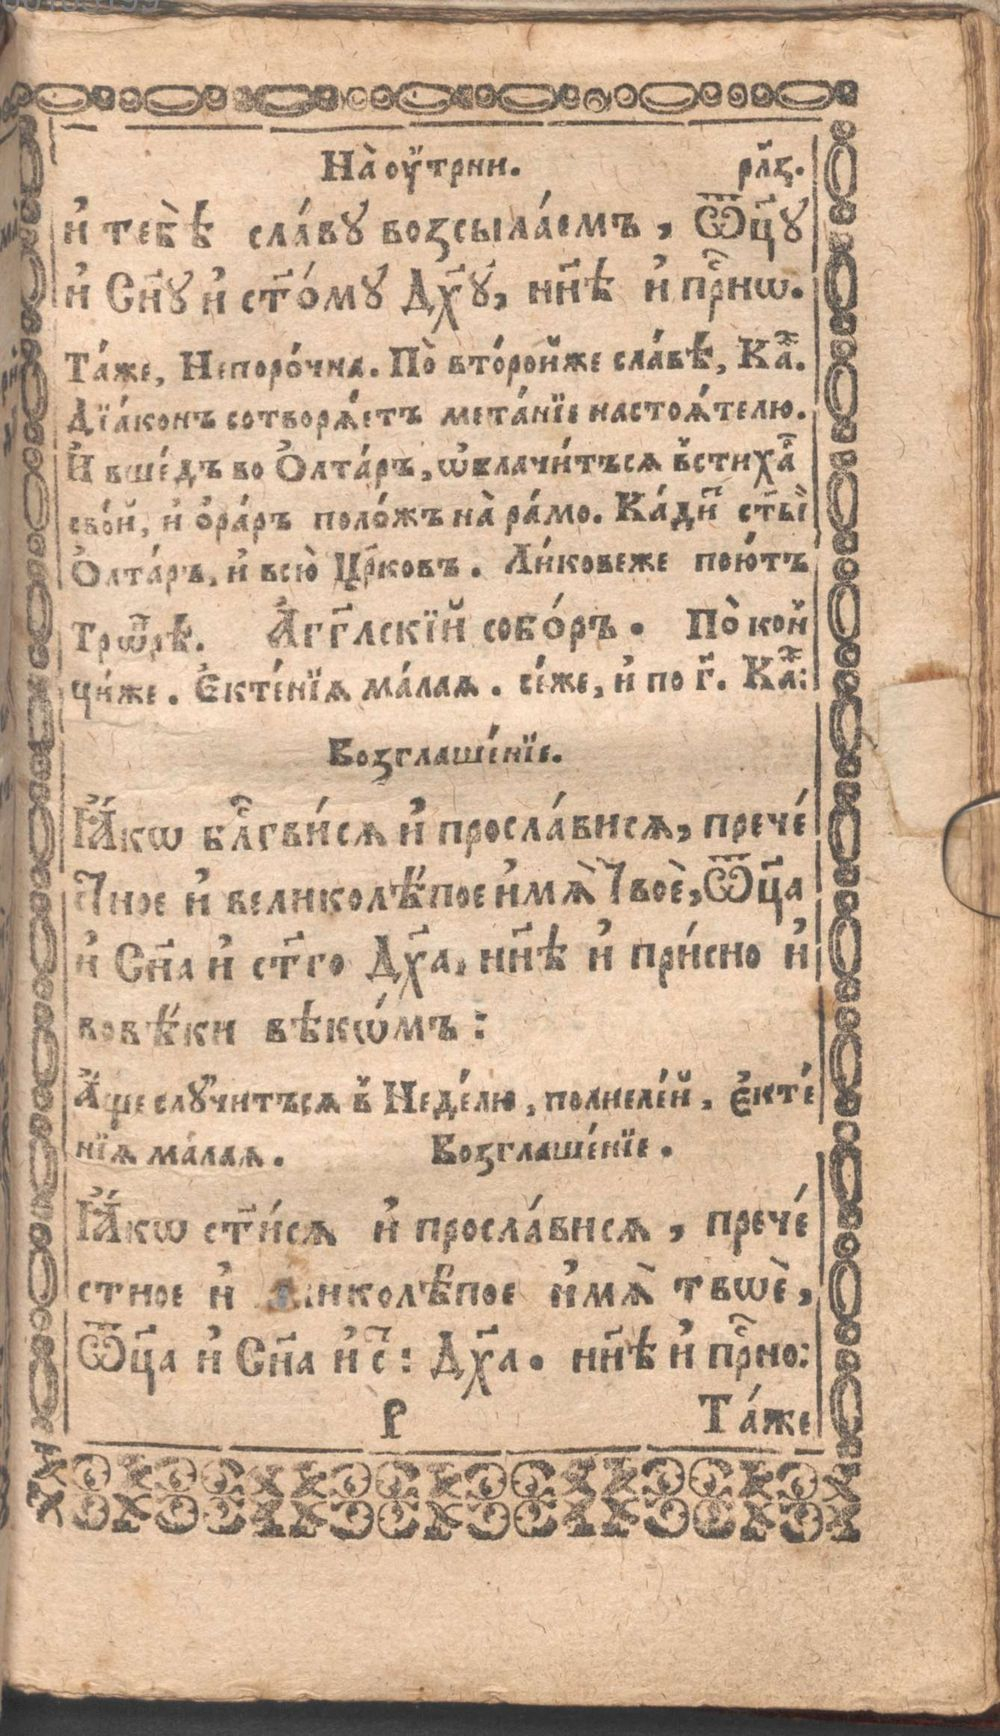 На̀ оу҆́трни. рл҃з.
и҆ тебѣ̀ сла́вꙋ возсыла́емъ, Ѿц҃ꙋ
и҆ Сн҃ꙋ и҆ ст҃о́мꙋ Дх҃ꙋ́, нн҃ѣ и҆ прⷭ҇нѡ.
Та́же, Непоро́чна. По̀ вто́ройже сла́вѣ, Каⷴ҇.
Дїа́конъ сотворѧ́етъ мета́нїе настоѧ́телю.
И҆ вше́дъ во О҆лта́ръ, ѡ҆влачи́тъсѧ в̾стихаⷬ҇
сво́й, и҆ о҆ра́ръ поло́жъ на̀ ра́мо. Ка́дитⷮ ст҃ы́й
О҆лта́ръ, и҆ всю̀ Цр҃ковъ. Ли́ковеже пою́тъ
Трѡⷫ҇рѣ. А҆́гг҃лскїй собо́ръ. По̀ кон
ци́же. Е҆кте́нїѧ ма́лаѧ. си́же, и҆ по г҃. Каⷴ҇:
Возглаше́нїе.
Ꙗ҆́кѡ блⷭ҇гви́сѧ и҆ просла́висѧ, прече́
стное и҆ великолѣ́пое и҆мѧ̀ твоѐ, Ѿц҃а
и҆ Сн҃а и҆ ст҃го Дх҃а, нн҃ѣ и҆ при́сно и҆
вовѣ́ки вѣкѡ́мъ:
А҆́ще слꙋ́читъсѧ в̾ Неде́лю, полиеле́й, е҆кте́
нїѧ ма́лаѧ. Возглаше́нїе.
Ꙗ҆́кѡ ст҃и́сѧ и҆ просла́висѧ, прече́
стное и҆ николѣ́пое и҆мѧ̀ твѡѐ,
Ѿц҃а и҆ Сн҃а и҆ с҃: Дх҃а. нн҃ѣ и҆ прⷭ҇но:
Р Та́же